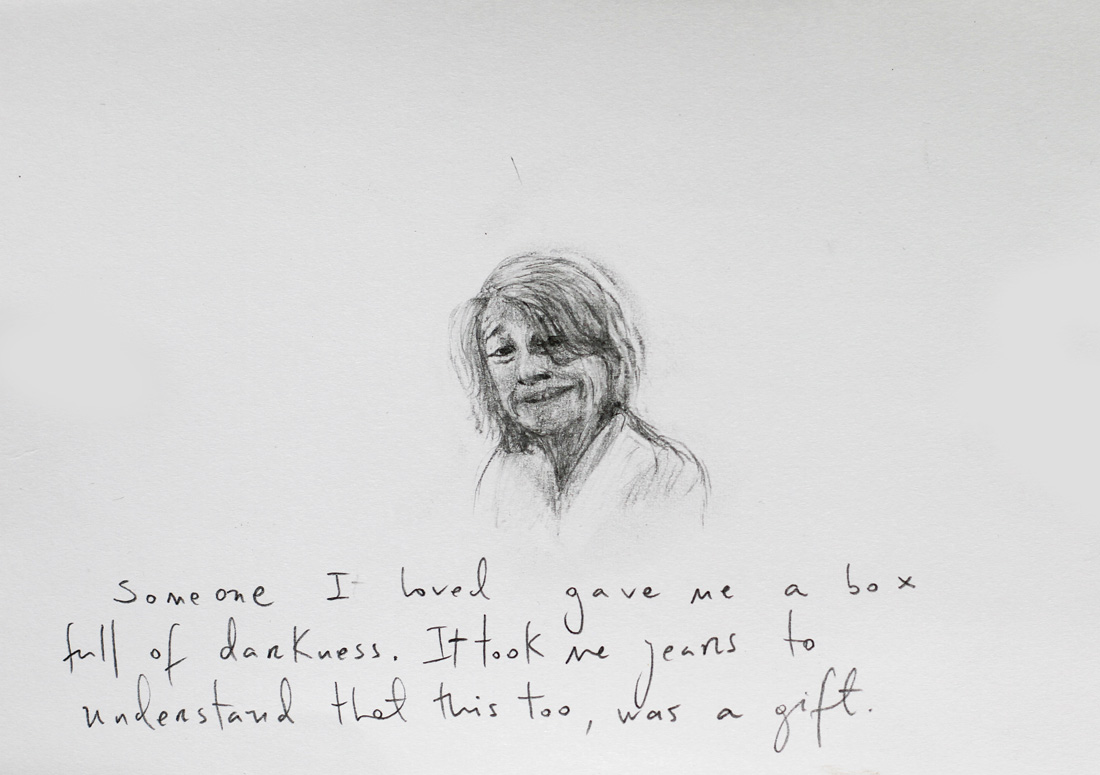 Someone I loved gave me a box
full of darkness. It took me years to
understand that this too, was a gift.